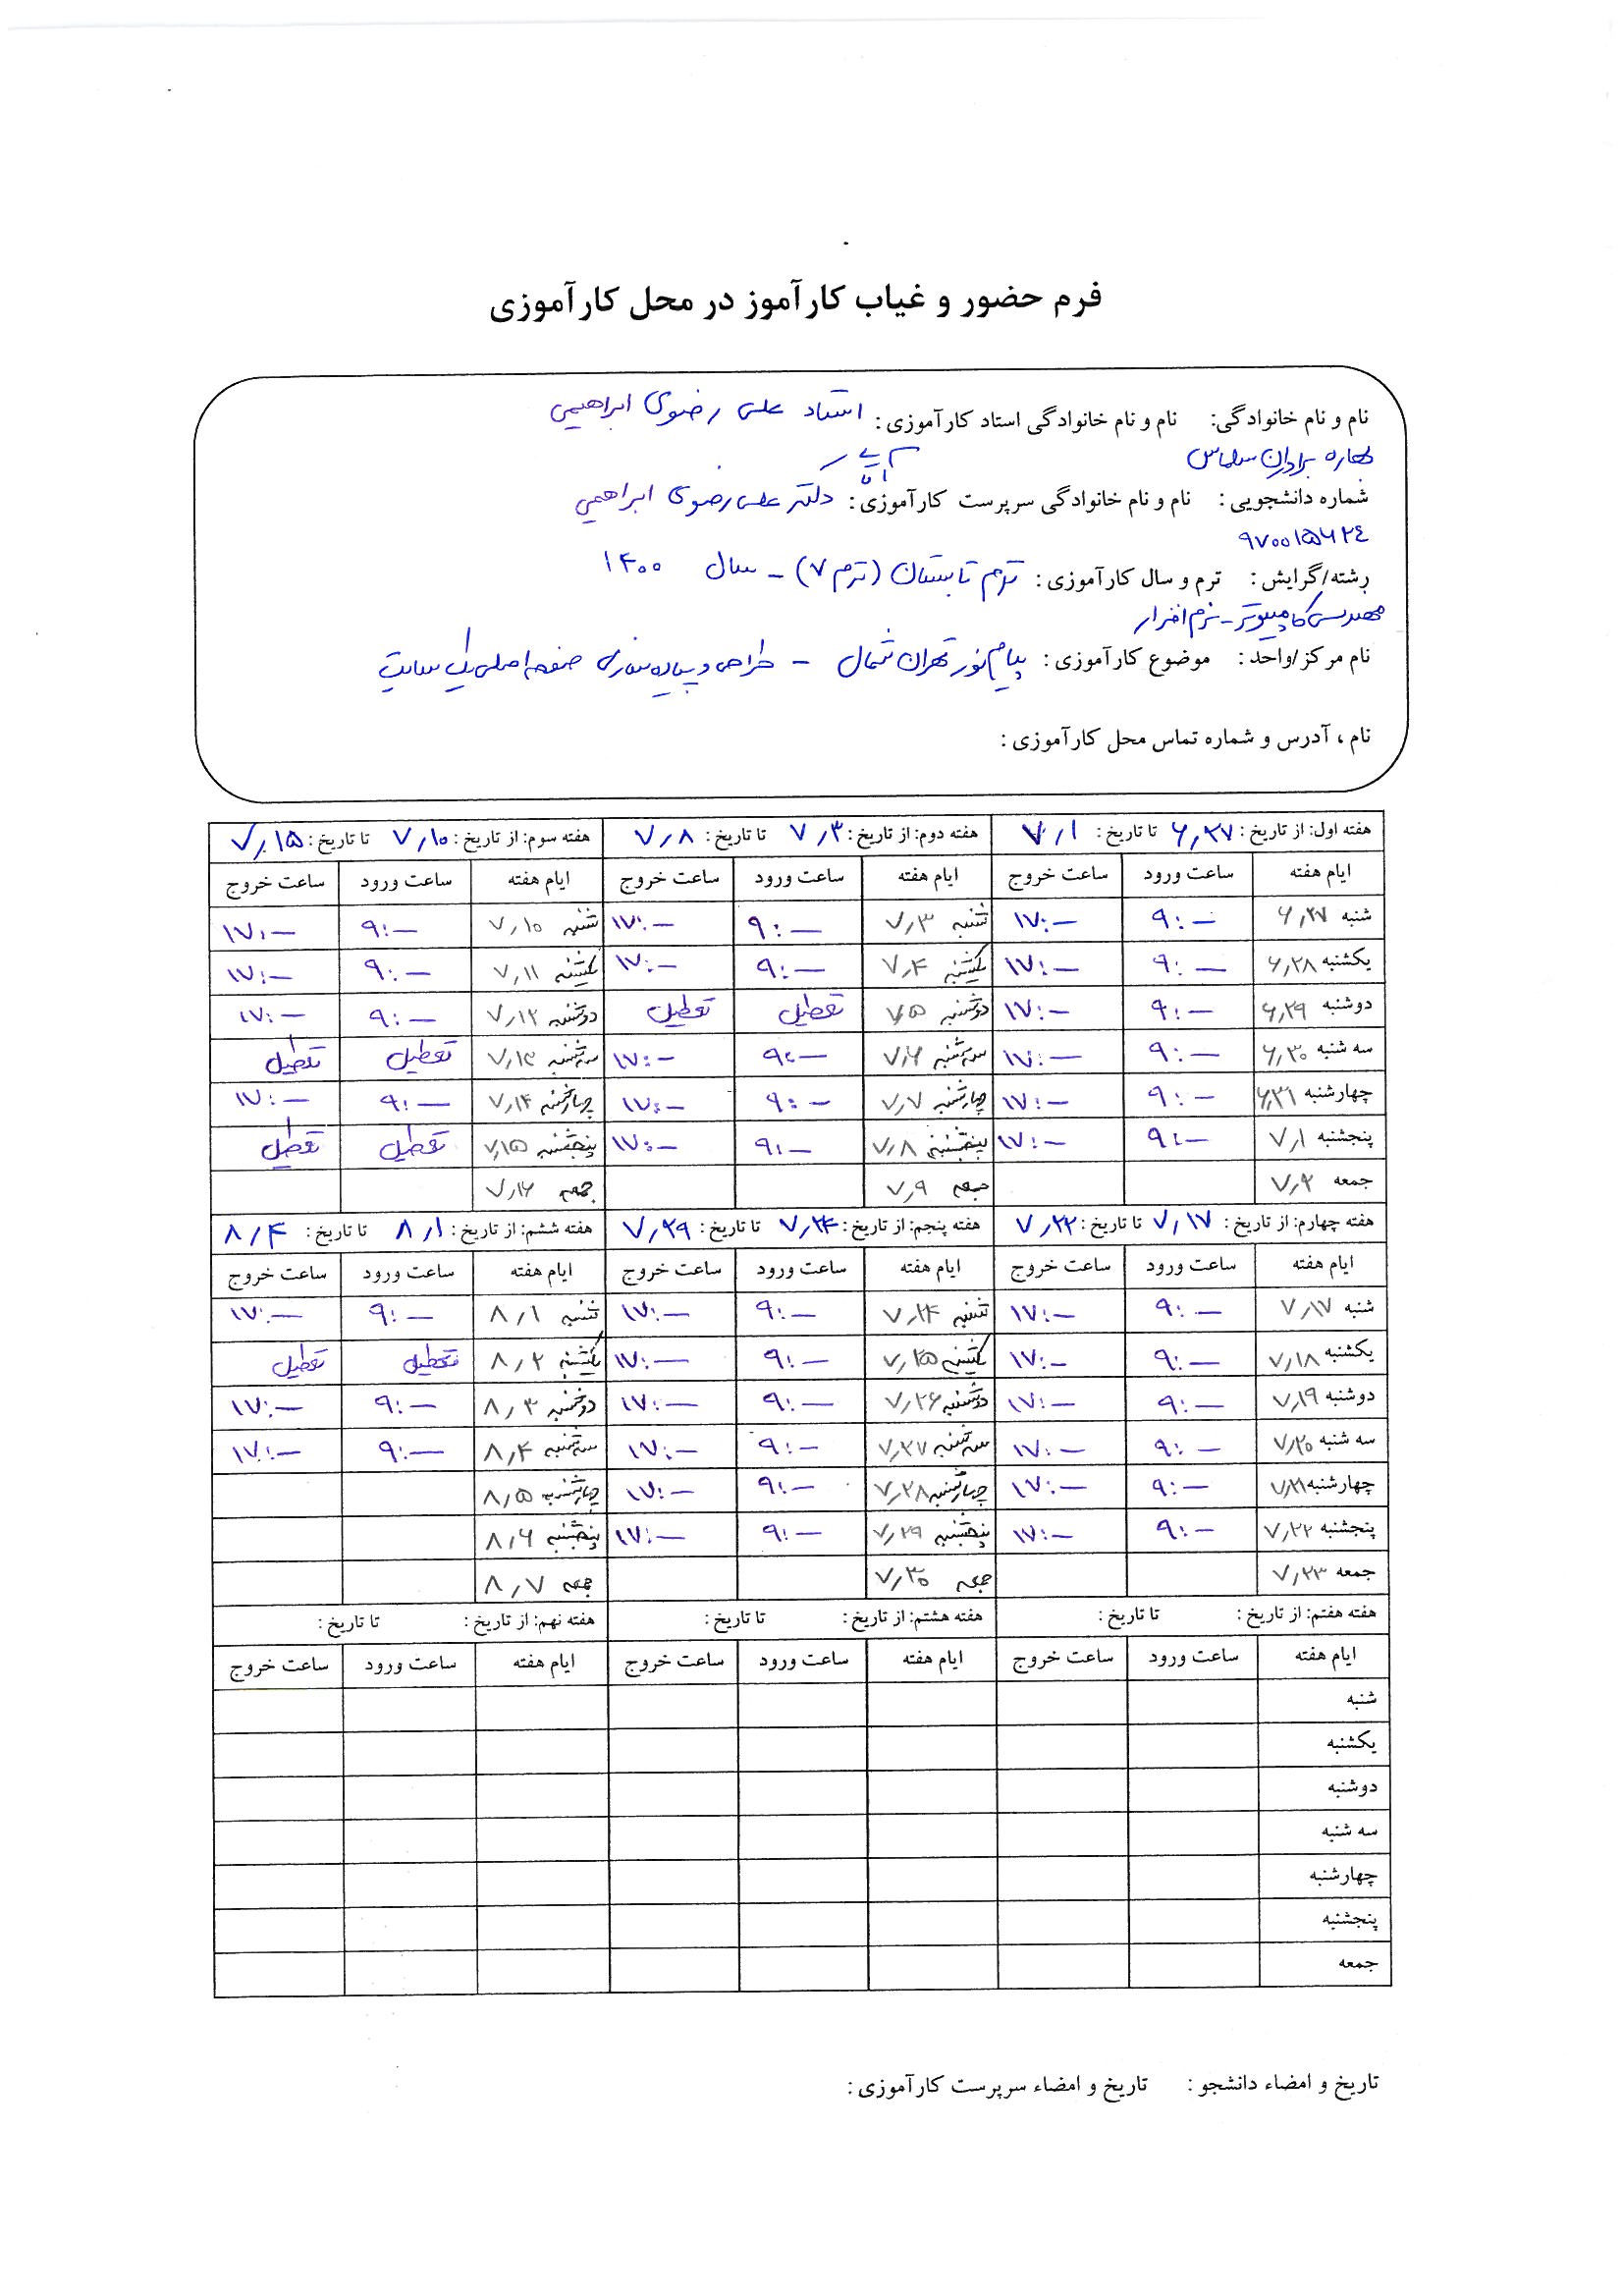 فرم حضور و غیاب کارآموز در محل کارآموزی
نام و نام خانوادگی: نام و نام خانوادگی استاد کارآموزی: استاد علی رضوی ابراهیمی
بهاره برادران سلماس
شماره دانشجویی: نام و نام خانوادگی سرپرست کارآموزی: آقای دکتر علی رضوی ابراهیمی
۹۷۰۰۱۵۶۲۴
رشته/گرایش: ترم و سال کارآموزی: ترم تابستان (ترم ۷) - سال ۱۴۰۰
مهندسی کامپیوتر - نرم افزار
نام مرکز/واحد: موضوع کارآموزی: پیام نور تهران شمال - طراحی و پیاده سازی صفحه اصلی یک سایت
نام ، آدرس و شماره تماس محل کارآموزی:
هفته اول: از تاریخ: ۶٫۲۷ تا تاریخ: ۷٫۱ هفته دوم: از تاریخ: ۷٫۳ تا تاریخ: ۷٫۸ هفته سوم: از تاریخ: ۷٫۱۰ تا تاریخ: ۷٫۱۵
ایام هفته ساعت ورود ساعت خروج ایام هفته ساعت ورود ساعت خروج ایام هفته ساعت ورود ساعت خروج
شنبه ۶٫۲۷ ۹:— ۱۷:— شنبه ۷٫۳ ۹:— ۱۷:— شنبه ۷٫۱۰ ۹:— ۱۷:—
یکشنبه ۶٫۲۸ ۹:— ۱۷:— یکشنبه ۷٫۴ ۹:— ۱۷:— یکشنبه ۷٫۱۱ ۹:— ۱۷:—
دوشنبه ۶٫۲۹ ۹:— ۱۷:— دوشنبه ۷٫۵ تعطیل تعطیل دوشنبه ۷٫۱۲ ۹:— ۱۷:—
سه شنبه ۶٫۳۰ ۹:— ۱۷:— سه شنبه ۷٫۶ ۹:— ۱۷:— سه شنبه ۷٫۱۳ تعطیل تعطیل
چهارشنبه ۶٫۳۱ ۹:— ۱۷:— چهارشنبه ۷٫۷ ۹:— ۱۷:— چهارشنبه ۷٫۱۴ ۹:— ۱۷:—
پنجشنبه ۷٫۱ ۹:— ۱۷:— پنجشنبه ۷٫۸ ۹:— ۱۷:— پنجشنبه ۷٫۱۵ تعطیل تعطیل
جمعه ۷٫۲ جمعه ۷٫۹ جمعه ۷٫۱۶
هفته چهارم: از تاریخ: ۷٫۱۷ تا تاریخ: ۷٫۲۲ هفته پنجم: از تاریخ: ۷٫۲۴ تا تاریخ: ۷٫۲۹ هفته ششم: از تاریخ: ۸٫۱ تا تاریخ: ۸٫۴
ایام هفته ساعت ورود ساعت خروج ایام هفته ساعت ورود ساعت خروج ایام هفته ساعت ورود ساعت خروج
شنبه ۷٫۱۷ ۹:— ۱۷:— شنبه ۷٫۲۴ ۹:— ۱۷:— شنبه ۸٫۱ ۹:— ۱۷:—
یکشنبه ۷٫۱۸ ۹:— ۱۷:— یکشنبه ۷٫۲۵ ۹:— ۱۷:— یکشنبه ۸٫۲ تعطیل تعطیل
دوشنبه ۷٫۱۹ ۹:— ۱۷:— دوشنبه ۷٫۲۶ ۹:— ۱۷:— دوشنبه ۸٫۳ ۹:— ۱۷:—
سه شنبه ۷٫۲۰ ۹:— ۱۷:— سه شنبه ۷٫۲۷ ۹:— ۱۷:— سه شنبه ۸٫۴ ۹:— ۱۷:—
چهارشنبه ۷٫۲۱ ۹:— ۱۷:— چهارشنبه ۷٫۲۸ ۹:— ۱۷:— چهارشنبه ۸٫۵
پنجشنبه ۷٫۲۲ ۹:— ۱۷:— پنجشنبه ۷٫۲۹ ۹:— ۱۷:— پنجشنبه ۸٫۶
جمعه ۷٫۲۳ جمعه ۷٫۳۰ جمعه ۸٫۷
هفته هفتم: از تاریخ: تا تاریخ: هفته هشتم: از تاریخ: تا تاریخ: هفته نهم: از تاریخ: تا تاریخ:
ایام هفته ساعت ورود ساعت خروج ایام هفته ساعت ورود ساعت خروج ایام هفته ساعت ورود ساعت خروج
شنبه
یکشنبه
دوشنبه
سه شنبه
چهارشنبه
پنجشنبه
جمعه
تاریخ و امضاء دانشجو: تاریخ و امضاء سرپرست کارآموزی: